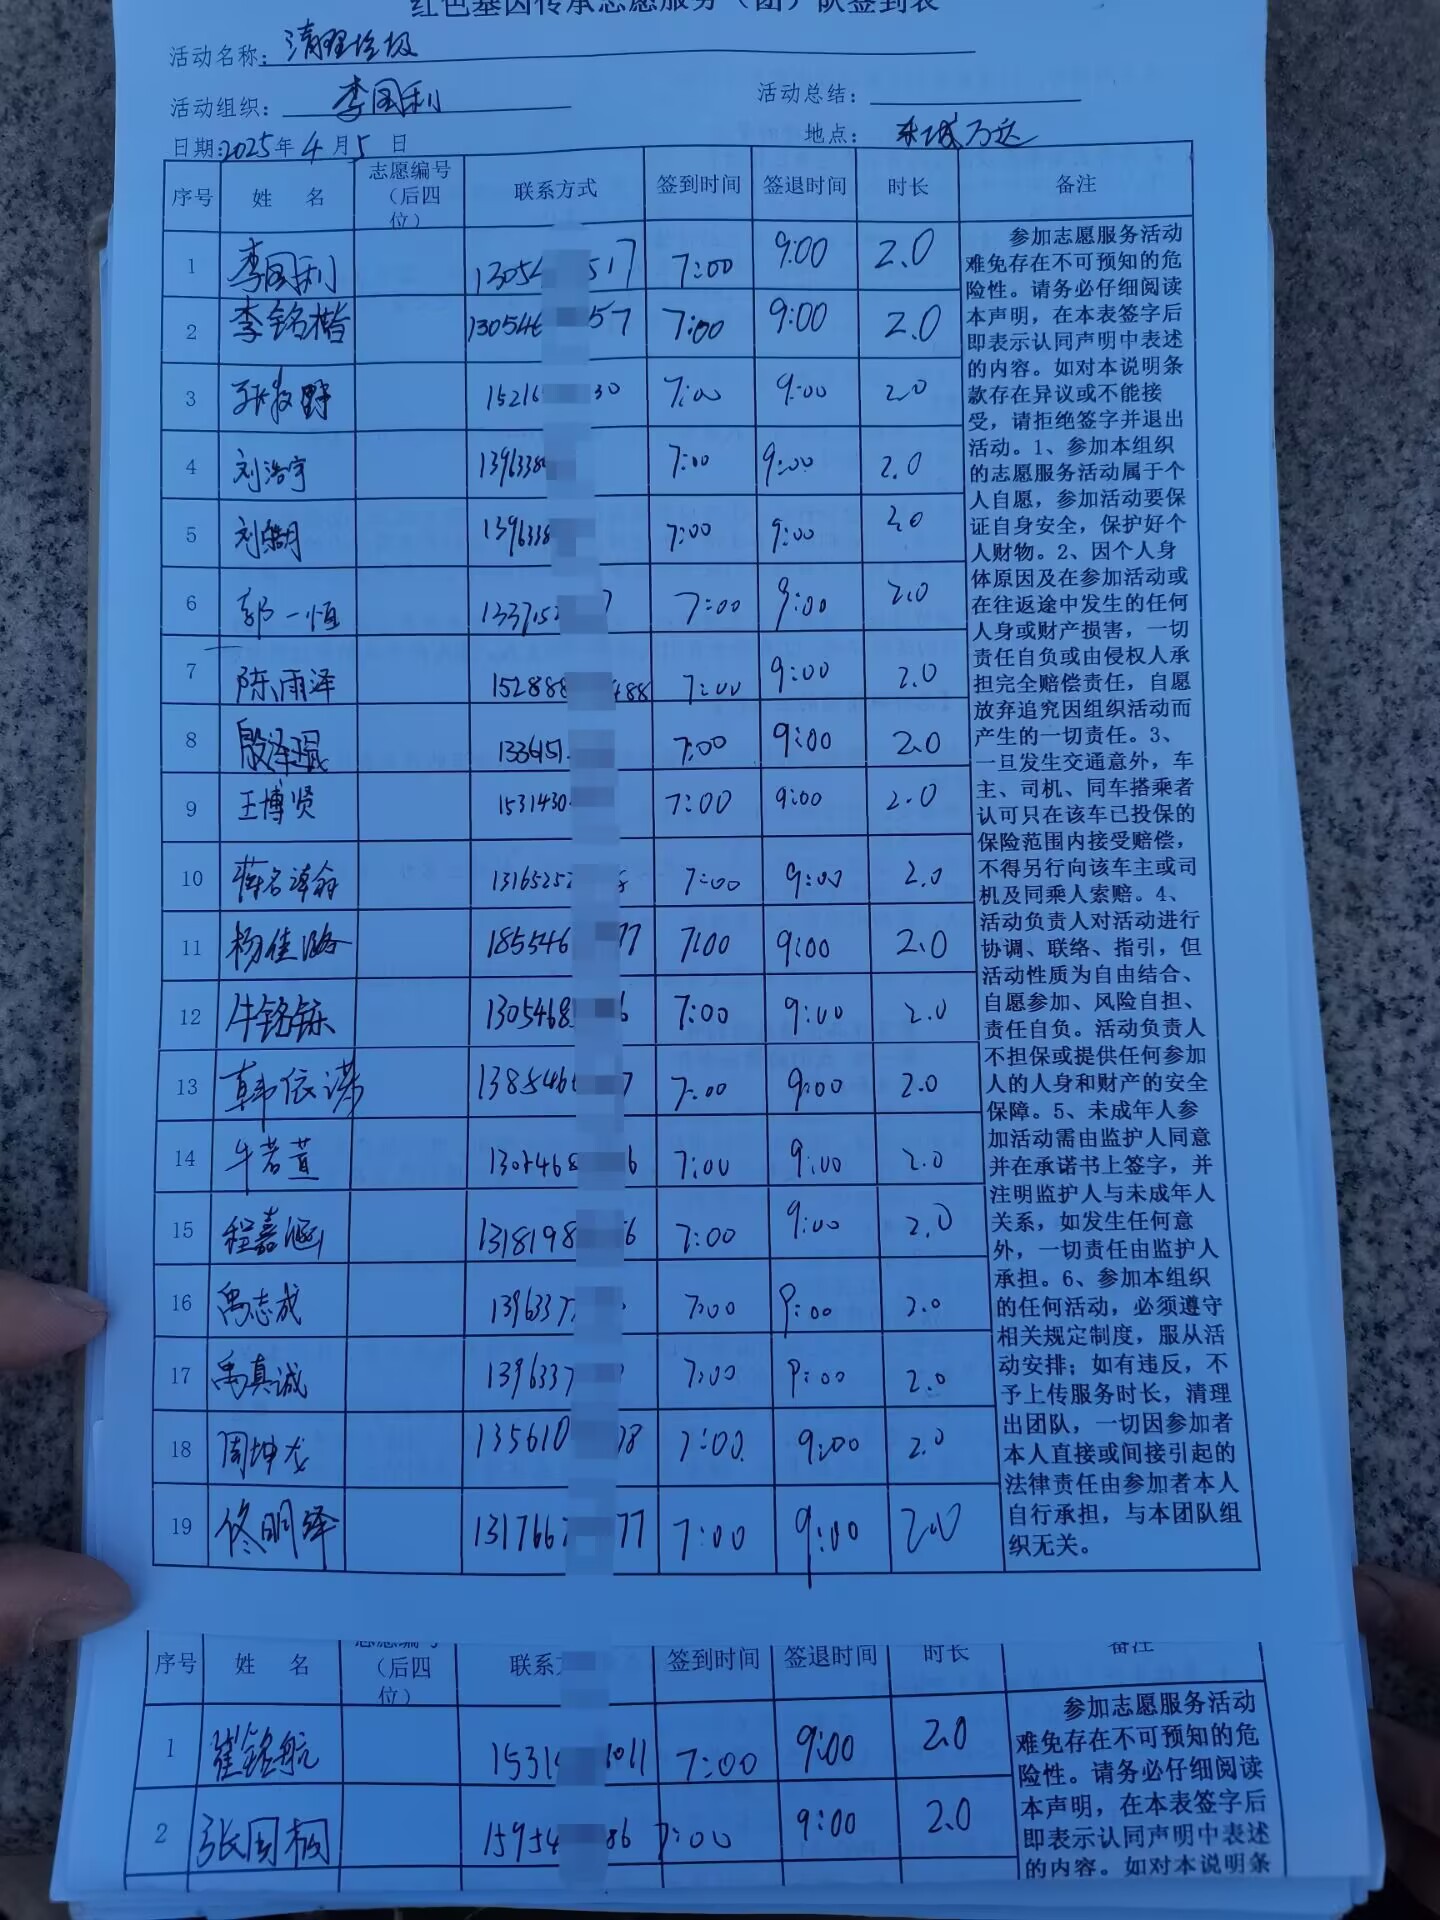 红色基因传承志愿服务（团）队签到表
活动名称：清理垃圾
活动组织：李国利 活动总结：
日期：2025年4月5日 地点：东城万达
序号 姓 名 志愿编号（后四位） 联系方式 签到时间 签退时间 时长 备注
1 李国利 1305 517 7:00 9:00 2.0
2 李铭楷 130546 57 7:00 9:00 2.0
3 张牧野 1521 30 7:00 9:00 2.0
4 刘浩宇 139638 7:00 9:00 2.0
5 刘 139638 7:00 9:00 2.0
6 郭一恒 133715 7 7:00 9:00 2.0
7 陈雨泽 152888 488 7:00 9:00 2.0
8 殷泽琨 133615 7:00 9:00 2.0
9 王博贤 1531430 7:00 9:00 2.0
10 1316525 7:00 9:00 2.0
11 杨佳 185546 77 7:00 9:00 2.0
12 牛铭铄 1305468 6 7:00 9:00 2.0
13 韩依诺 138546 7 7:00 9:00 2.0
14 牛若萱 1305468 6 7:00 9:00 2.0
15 程嘉涵 1318198 56 7:00 9:00 2.0
16 禹志成 139637 7:00 9:00 2.0
17 禹真诚 139637 7:00 9:00 2.0
18 周坤龙 135610 78 7:00 9:00 2.0
19 佟明泽 131766 77 7:00 9:00 2.0
参加志愿服务活动
难免存在不可预知的危
险性。请务必仔细阅读
本声明，在本表签字后
即表示认同声明中表述
的内容。如对本说明条
款存在异议或不能接
受，请拒绝签字并退出
活动。1、参加本组织
的志愿服务活动属于个
人自愿，参加活动要保
证自身安全，保护好个
人财物。2、因个人身
体原因及在参加活动或
在往返途中发生的任何
人身或财产损害，一切
责任自负或由侵权人承
担完全赔偿责任，自愿
放弃追究因组织活动而
产生的一切责任。3、
一旦发生交通意外，车
主、司机、同车搭乘者
认可只在该车已投保的
保险范围内接受赔偿，
不得另行向该车主或司
机及同乘人索赔。4、
活动负责人对活动进行
协调、联络、指引，但
活动性质为自由结合、
自愿参加、风险自担、
责任自负。活动负责人
不担保或提供任何参加
人的人身和财产的安全
保障。5、未成年人参
加活动需由监护人同意
并在承诺书上签字，并
注明监护人与未成年人
关系，如发生任何意
外，一切责任由监护人
承担。6、参加本组织
的任何活动，必须遵守
相关规定制度，服从活
动安排；如有违反，不
予上传服务时长，清理
出团队，一切因参加者
本人直接或间接引起的
法律责任由参加者本人
自行承担，与本团队组
织无关。
序号 姓 名 志愿编号（后四位） 联系 签到时间 签退时间 时长 备注
1 崔铭航 1531 1011 7:00 9:00 2.0
2 张国桐 15954 86 7:00 9:00 2.0
参加志愿服务活动
难免存在不可预知的危
险性。请务必仔细阅读
本声明，在本表签字后
即表示认同声明中表述
的内容。如对本说明条